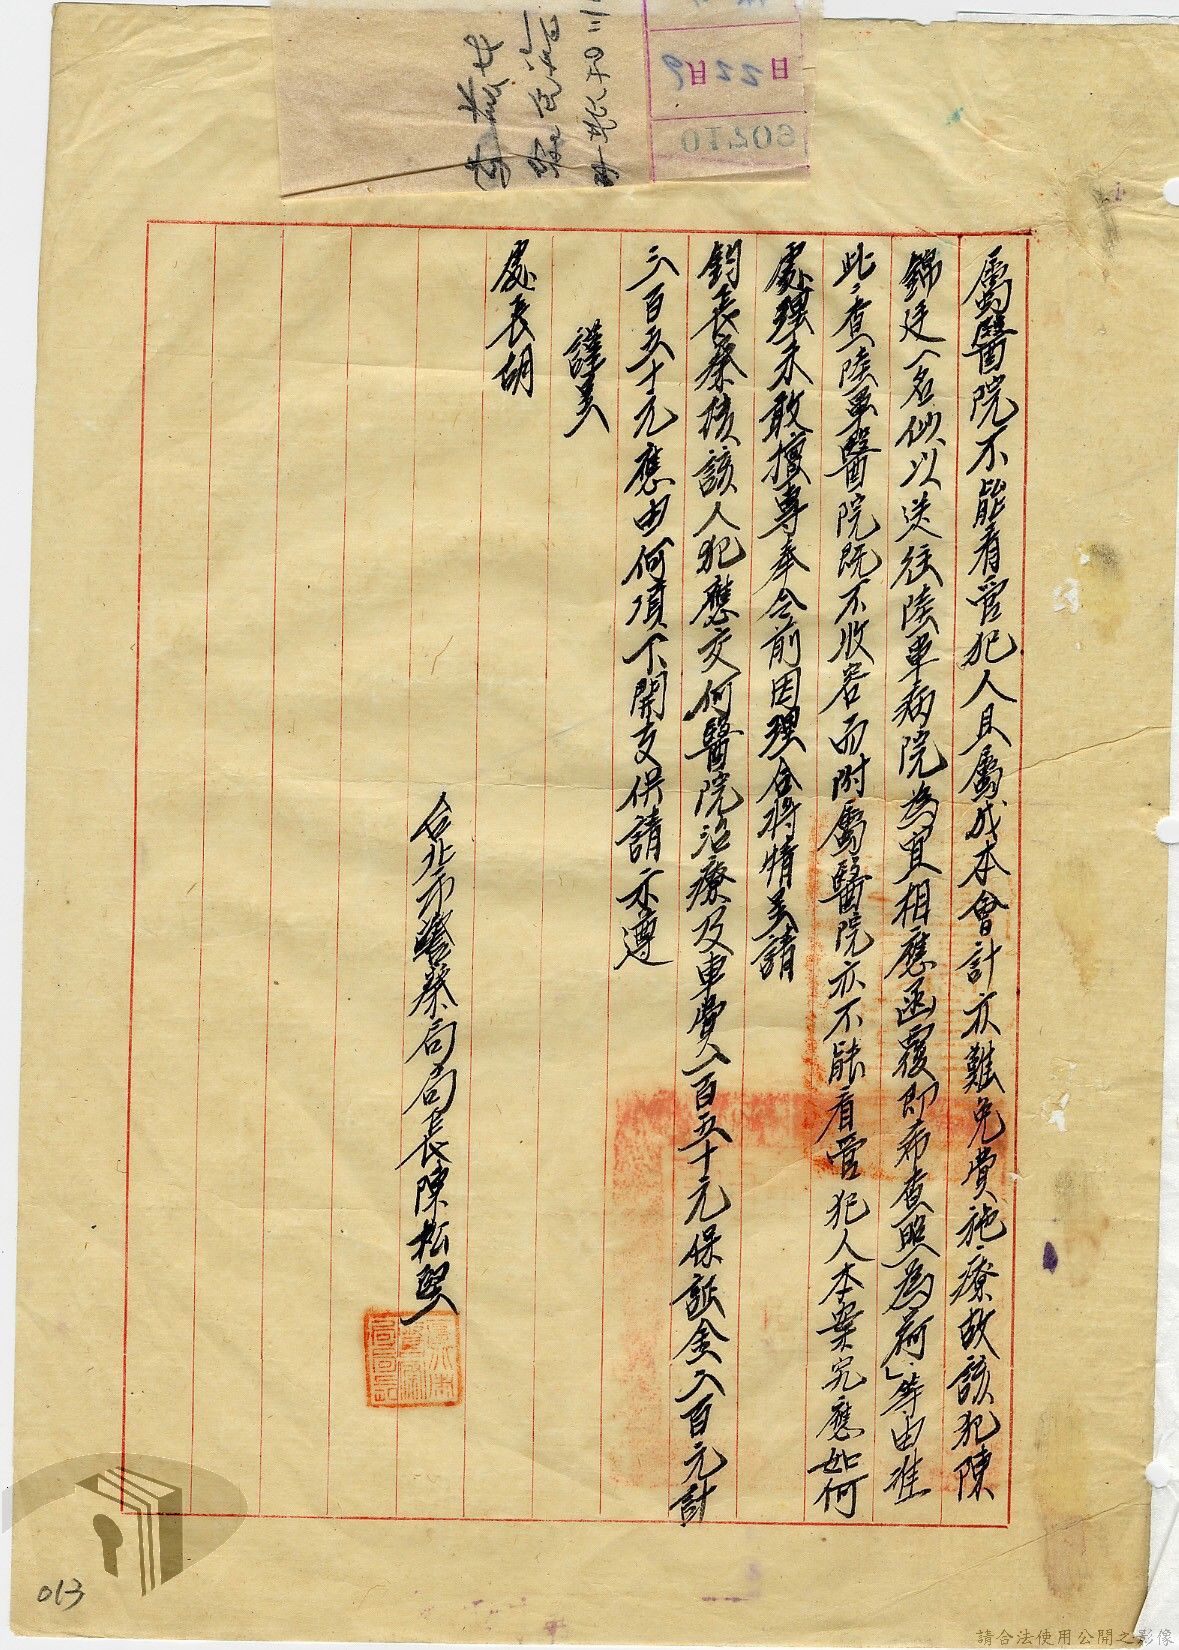 屬醫院不能看管犯人且屬成本會計亦難免費施療故該犯陳
錦廷一名似以送往陸軍病院為宜相應函覆即希查照為荷」等由准
此查陸軍醫院既不收容而附屬醫院亦不能看管犯人本案究應如何
處理未敢擅專奉令前因理合將情呈請
鈞長察核該人犯應交何醫院治療及車費八百五十元保証金
百元計
八百五十元應由何項下開支併請示遵
謹呈
處長胡
台北市警察局局長陳松堅
日22月9
60210
013
請合法使用公開之影像